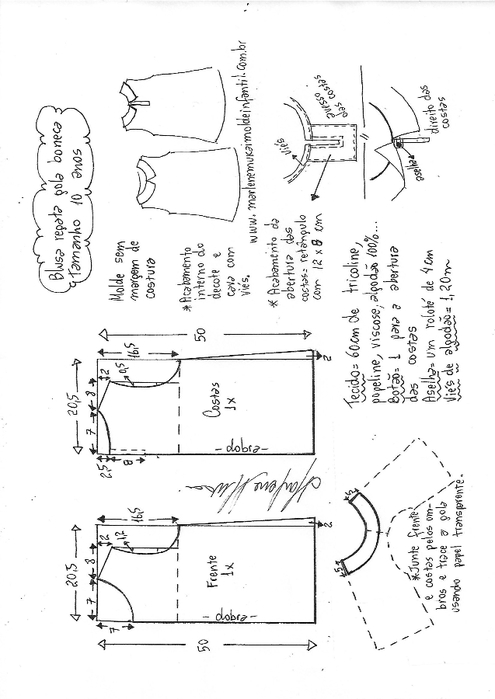 Blusa regata gola boneca
Tamanho 10 anos
Molde sem
margem de
costura
*Acabamento
interno do
decote e
cava com
viés.
www.marlenemukaimoldeinfantil.com.br
* Acabamento da
abertura das
costas= retângulo
com 12 x 8 cm
viés
avesso
das costas
aselha
direito das
costas
50
16,5
2
0,5
20,5
8
7
2,5
8
Costas
1x
-dobra-
2
Tecido= 60cm de tricoline,
popeline, viscose, algodão 100%...
Botão= 1 para a abertura
das costas
Aselha= um rolotê de 4cm
Viés de algodão= 1,20m
Marlene Mukai
16,5
2
1,2
20,5
8
7
7
Frente
1x
-dobra-
2
50
5
5
*Junte frente
e costas pelos om-
bros e trace a gola
usando papel transparente.